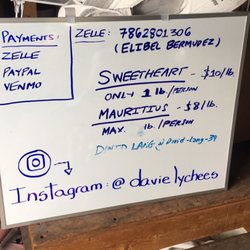 PAYMENTS:
ZELLE
PAYPAL
VENMO
ZELLE: 7862801306
(ELIBEL BERMUDEZ)
SWEETHEART - $10/lb.
ONLY 1 lb./PERSON
MAURITIUS - $8/lb.
MAX. lb./PERSON
LANG @ David-Lang-39
Instagram: @davielychees